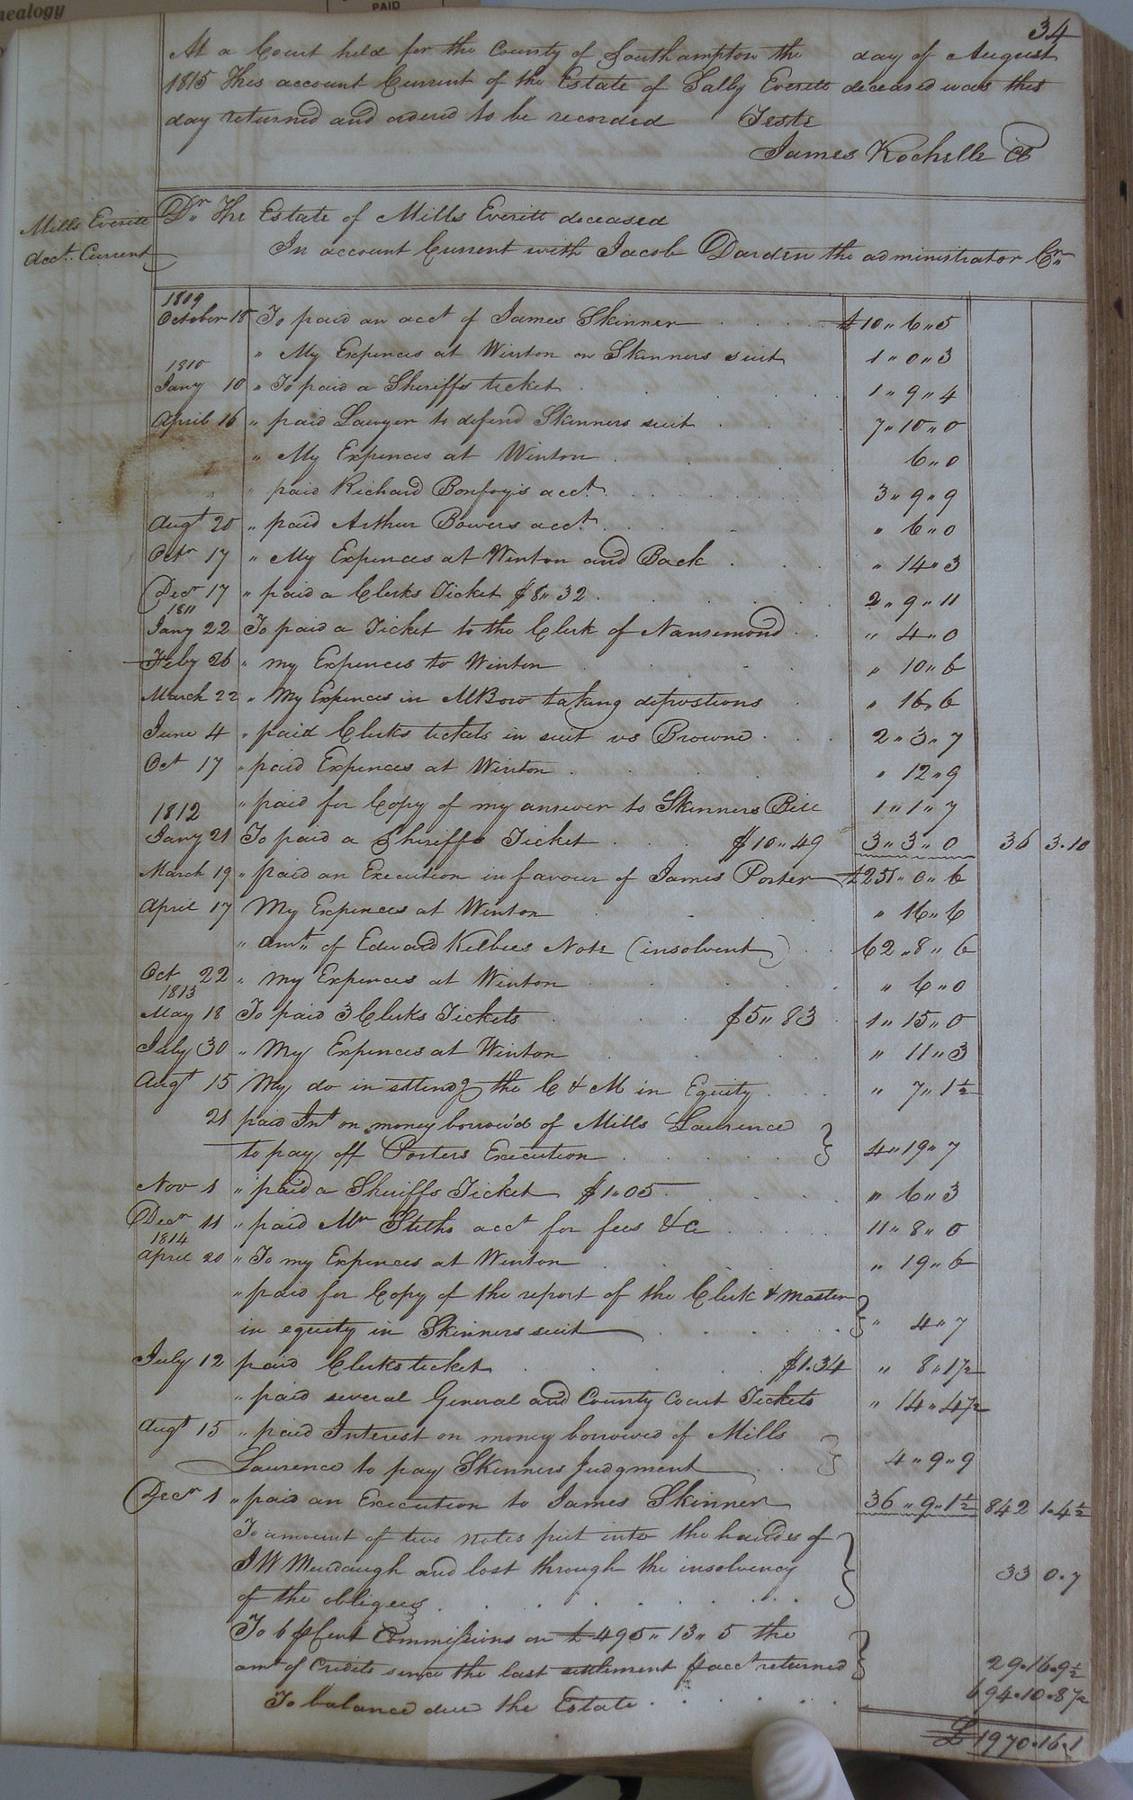 nealogy
PAID
34
At a Court held for the County of Southampton the day of August
1815 This account Current of the Estate of Sally Everett deceased was this
day returned and ordered to be recorded Teste
James Rochelle Cl
Mills Everitt
acct. Current
Dr. The Estate of Mills Everitt deceased
In account Current with Jacob Darden the administrator Cr.
1809
October 18 To paid an acct of James Skinner £10 „ 6 „ 5
„ My Expences at Winton on Skinners suit 1 „ 0 „ 3
1810
Jany 10 „ To paid a Sheriffs ticket 1 „ 9 „ 4
April 16 „ paid Lawyer to defend Skinners suit 7 „ 10 „ 0
„ My Expences at Winton 6 „ 0
„ paid Richard acct. 3 „ 9 „ 9
Augt 20 „ paid Arthur Bowers acct „ 6 „ 0
Octr 17 „ My Expences at Winton and Back „ 14 „ 3
Decr 17 „ paid a Clerks Ticket $8 „ 32 2 „ 9 „ 11
1811
Jany 22 To paid a Ticket to the Clerk of Nansemond „ 4 „ 0
Feby 26 „ my Expences to Winton „ 10 „ 6
March 22 „ My Expences in MBoro taking depostions „ 16 „ 6
June 4 „ paid Clerks tickets in suit vs Browne 2 „ 3 „ 7
Oct 17 „ paid Expences at Winton „ 12 „ 9
„ paid for Copy of my answer to Skinners Bill 1 „ 1 „ 7
1812
Jany 21 To paid a Sheriffs Ticket $10 „ 49 3 „ 3 „ 0 36 3 . 10
March 19 „ paid an Execution in favour of James Porter £ „ 0 „ 6
April 17 My Expences at Winton „ 16 „ 6
„ amt. of Edward Kelbees Note (insolvent) 62 „ 8 „ 6
Oct 22 „ my Expences at Winton „ 6 „ 0
1813
May 18 To paid 3 Clerks Tickets $5 „ 83 1 „ 15 „ 0
July 30 „ My Expences at Winton „ 11 „ 3
Augt 15 My do in attendg the C & M in Equity „ 7 „ 1½
21 paid Int on money borrow'd of Mills Laurence
to pay off Porters Execution 4 „ 19 „ 7
Nov 1 „ paid a Sheriffs Ticket $1 „ 05 „ 6 „ 3
Decr 11 „ paid Mr Stiths acct for fees &c 11 „ 8 „ 0
1814
April 20 „ To my Expences at Winton „ 19 „ 6
„ paid for Copy of the report of the Clerk & Master
in equity in Skinners suit „ 4 „ 7
July 12 paid Clerks ticket $1.34 „ 8 „ 1½
„ paid several General and County Court Tickets „ 14 „ 4½
Augt 15 „ paid Interest on money borrowed of Mills
Laurence to pay Skinners Judgment 4 „ 9 „ 9
Decr 1 „ paid an Execution to James Skinner 36 „ 9 „ 1½ 842 1 . 4½
To amount of two notes put into the hands of
J W Murdaugh and lost through the insolvency
of the obligees 33 0 . 7
To 6 ⅌ Cent Commissions on £495 „ 13 „ 5 the
amt of Credits since the last settlement ⅌ acct returned 29 . 16 . 9½
To balance due the Estate 694 . 10 . 8½
£1970 . 16 . 1